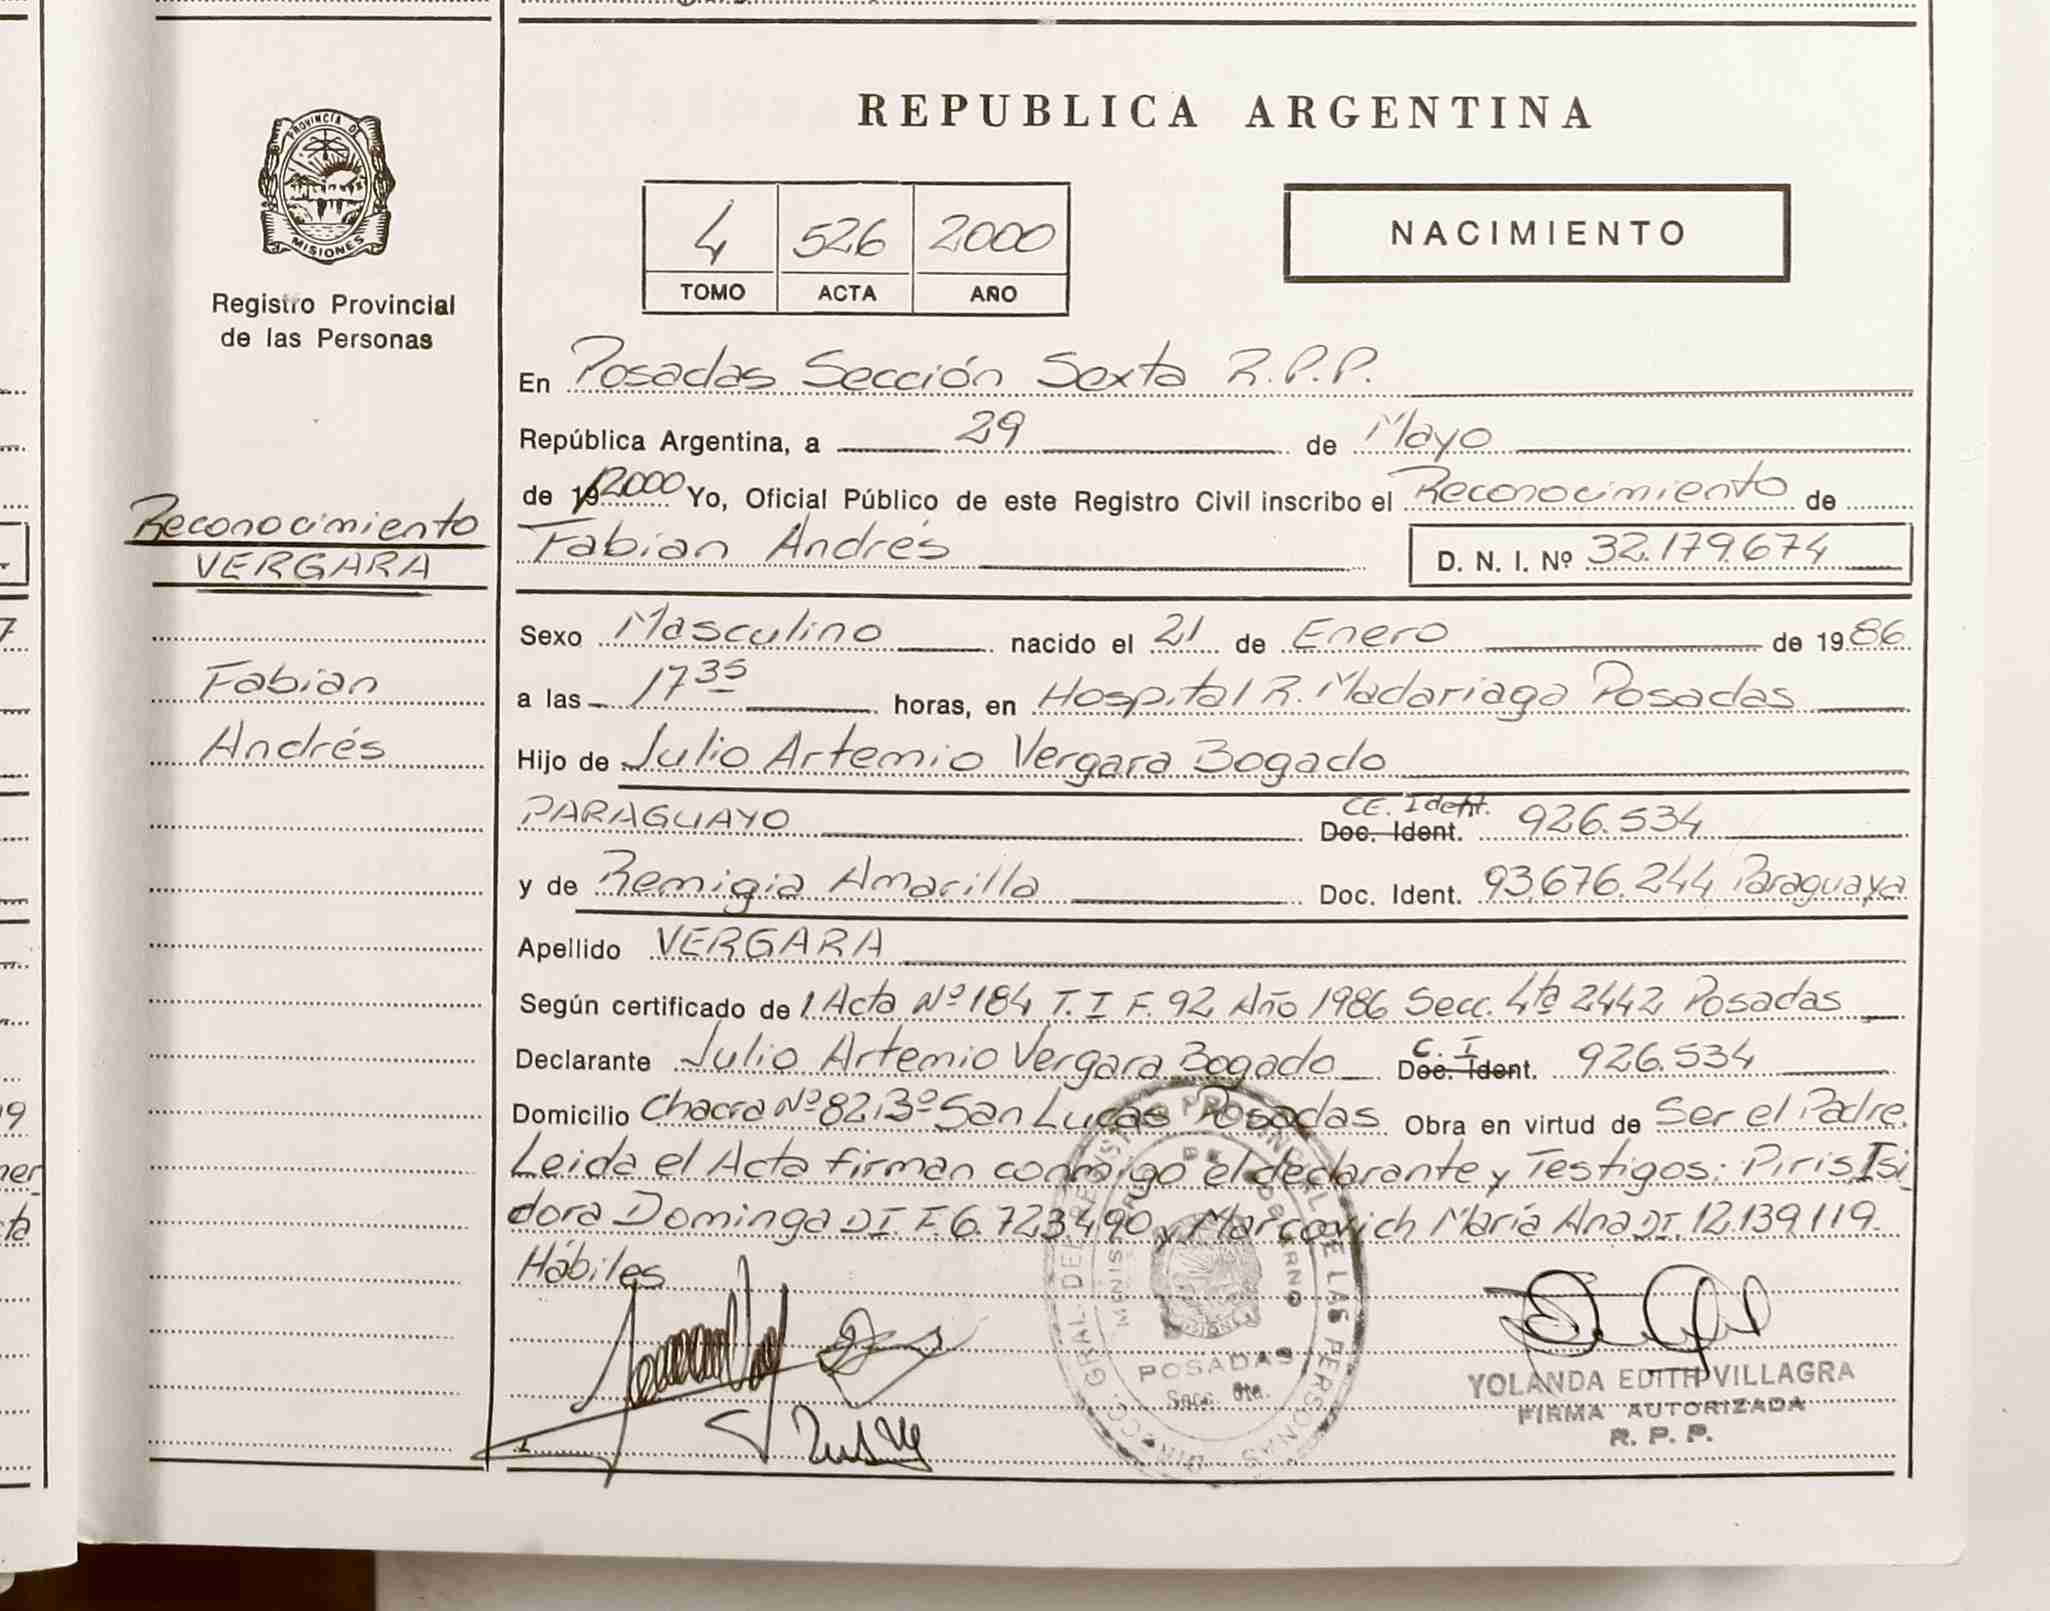 REPUBLICA ARGENTINA
PROVINCIA DE
MISIONES
Registro Provincial
de las Personas
4 526 2000
TOMO ACTA AÑO
NACIMIENTO
En Posadas Sección Sexta R.P.P.
República Argentina, a 29 de Mayo
de 19 2000 Yo, Oficial Público de este Registro Civil inscribo el Reconocimiento de
Fabian Andrés D. N. I. Nº 32.179.674
Sexo Masculino nacido el 21 de Enero de 1986
a las 17 35 horas, en Hospital R. Madariaga Posadas
Hijo de Julio Artemio Vergara Bogado
PARAGUAYO CE. Ident. Doc. Ident. 926.534
y de Remigia Amarilla Doc. Ident. 93.676.244 Paraguaya
Apellido VERGARA
Según certificado de 1 Acta Nº 184 T. I F. 92 Año 1986 Secc. 4ta 2442 Posadas
Declarante Julio Artemio Vergara Bogado C. I Doc. Ident. 926.534
Domicilio Chacra Nº 82 Bº San Lucas Posadas Obra en virtud de Ser el Padre.
Leida el Acta firman conmigo el declarante y Testigos: Piris Isi
dora Dominga DI. F. 6.723.490 y Marcovich María Ana DI. 12.139.119.
Hábiles
Reconocimiento
VERGARA
Fabian
Andrés
POSADAS
Secc. 6ta.
YOLANDA EDITH VILLAGRA
FIRMA AUTORIZADA
R. P. P.